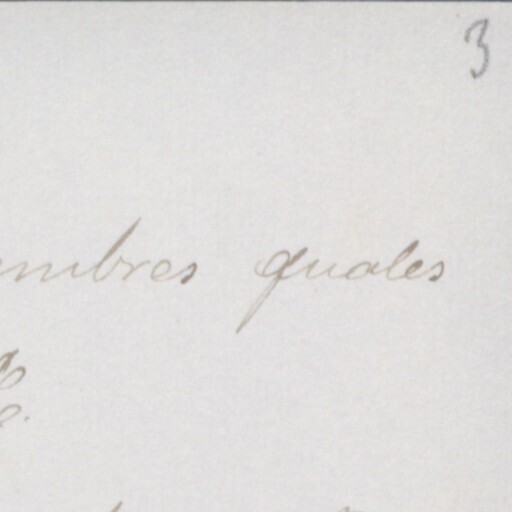 3
embres quales